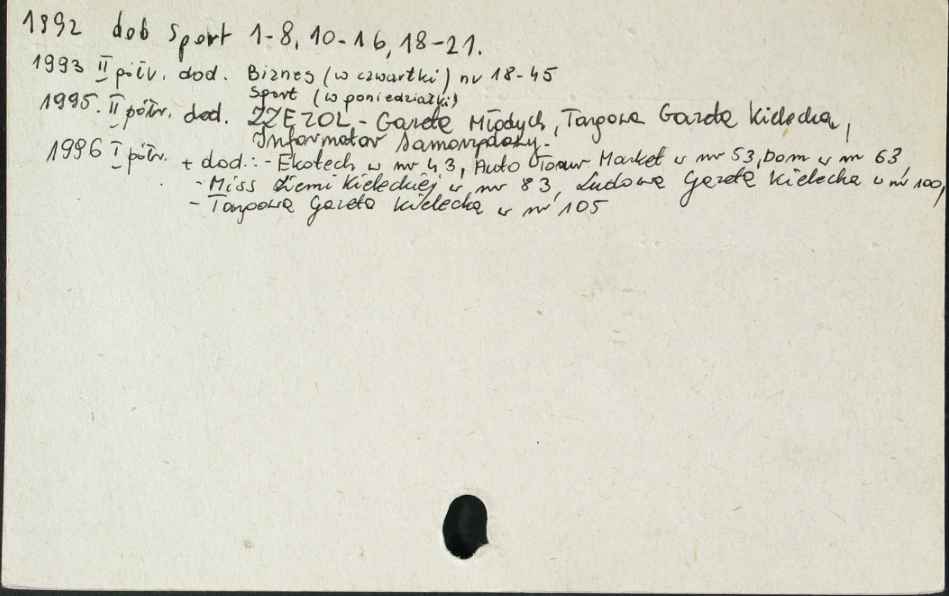 1992 dod Sport 1-8, 10-16, 18-21.
1993 II półr. dod. Biznes (w czwartki) nr 18-45
Sport (w poniedziałki)
1995. II półr. dod. - Gazeta Młodych, Targowa Gazeta Kielecka,
Informator Samorządowy.
1996 I półr. + dod.: - Ekotech w nr 43, Auto Tour Market w nr 53, Dom w nr 63,
- Miss Ziemi Kieleckiej w nr 83, Ludowa Gazeta Kielecka w nr 100,
- Targowa Gazeta Kielecka w nr 105